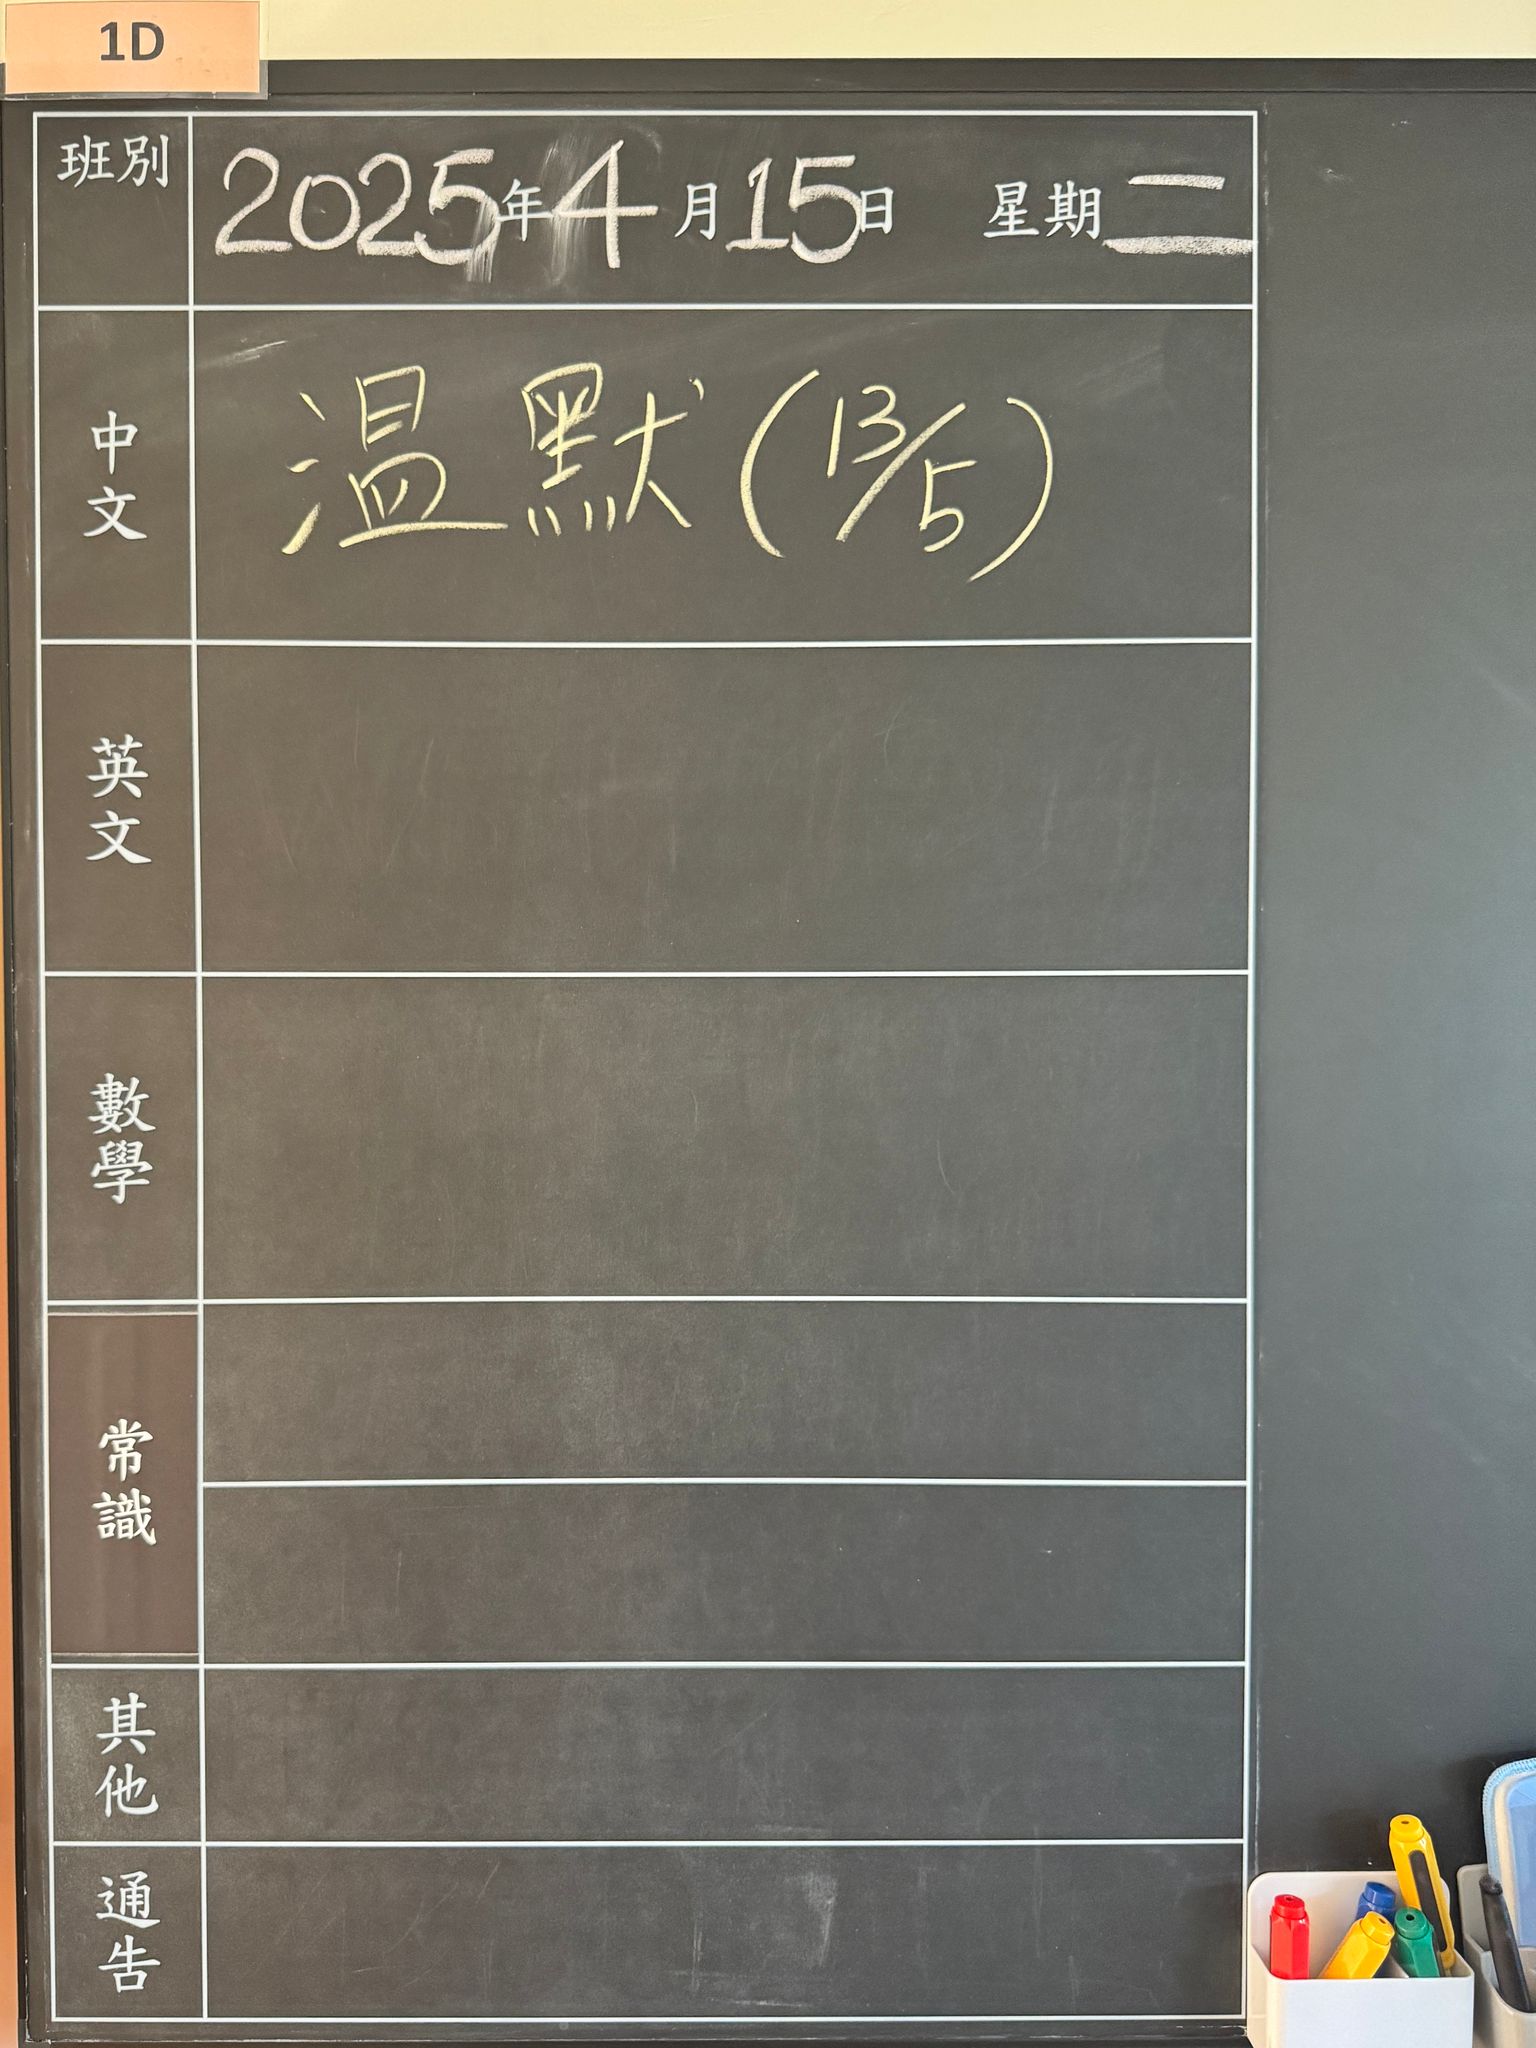 1D
班別
2025年4月15日 星期二
中文
温默(13/5)
英文
數學
常識
其他
通告